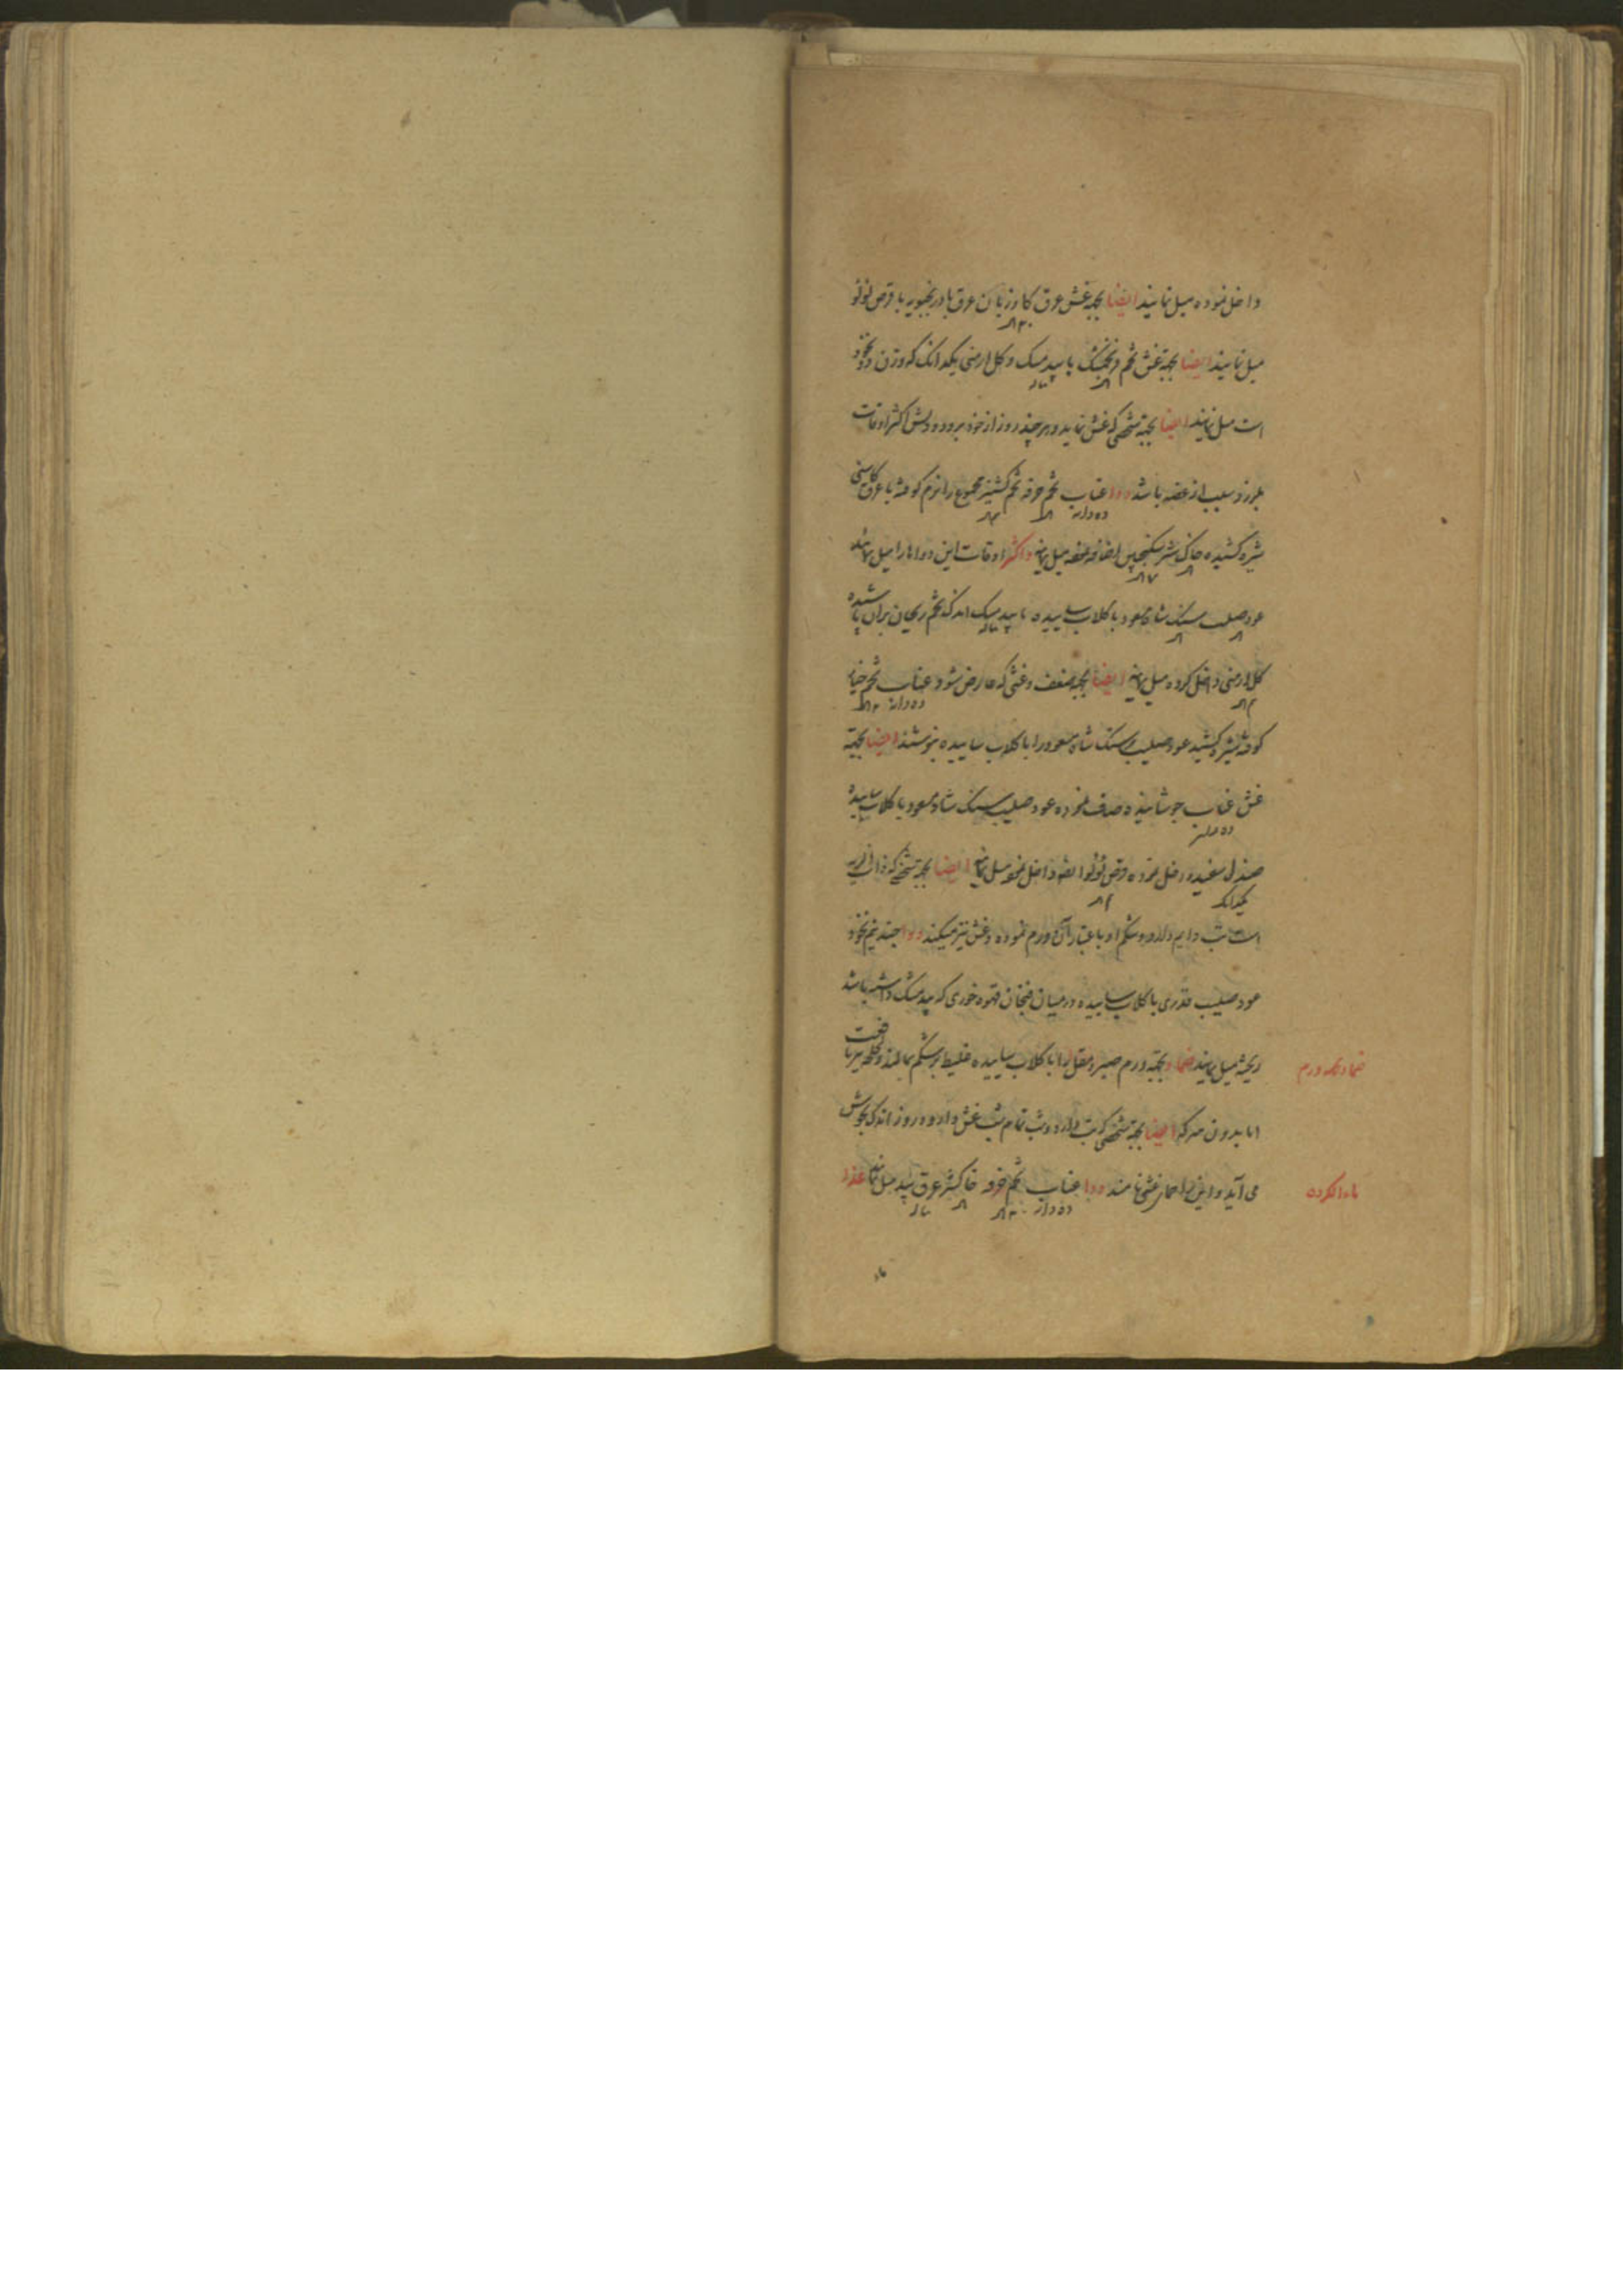 داخل نموده میل نمایند ایضا بجهة غش عرق کاوزبان عرق بادرنجبویه با قرص لؤلؤ
میل نمایند ایضا بجهة غش تخم فرنجمشک با بیدمشک و کل ارمنی یکدانک که وزن دو نخود
است میل نمایند ایضا بجهة شخصی که غش نماید و هر چند روز از خود برود و دلش اکثر اوقات
بلرزد و سبب از غصه باشد دوا عناب تخم خرفه تخم کشنیز مجموع را نرم کوفته با عرق کاسنی
ده دانه
شیره کشیده خاکشیر سکنجبین اضافه نموده میل نمایند و اکثر اوقات این دواها را میل نمایند
عود صلیب سنک شاه مسعود با کلاب ساییده با بیدمشک اندک تخم ریحان بران پاشیده
کل ارمنی داخل کرده میل نمایند ایضا بجهة ضعف و غشی که عارض شود عناب تخم خیار
ده دانه
کوفته شیره کشید عود صلیب و سنک شاه مسعود را با کلاب ساییده بنوشند ایضا بجهة
غش عناب جوشانیده صاف نموده عود صلیب سنک شاه مسعود با کلاب ساییده
ده دانه
صندل سفید داخل نموده قرص لؤلؤ داخل نموده میل نمایند ایضا بجهة شخصی که
یکدانک
است تب دایم دارد و شکم او باعتبار آن ورم نموده و غش نیز میکند دوا جند نیم نخود
عود صلیب قدری با کلاب ساییده در میان فنجان قهوه خوری که بیدمشک داشته باشد
ریخته میل نمایند ضماد بجهة ورم صبر و مقل را با کلاب ساییده غلیظ بر شکم بمالند
ضماد بجهة ورم
اما بدون سرکه ایضا بجهة شخصی که تب دارد و شب تمام شب غش دارد و روز اندک بهوش
می آید و این را حمار غشی نامند دوا عناب تخم خرفه خاکشیر عرق بید میل نمایند غذا
ده دانه
ماء